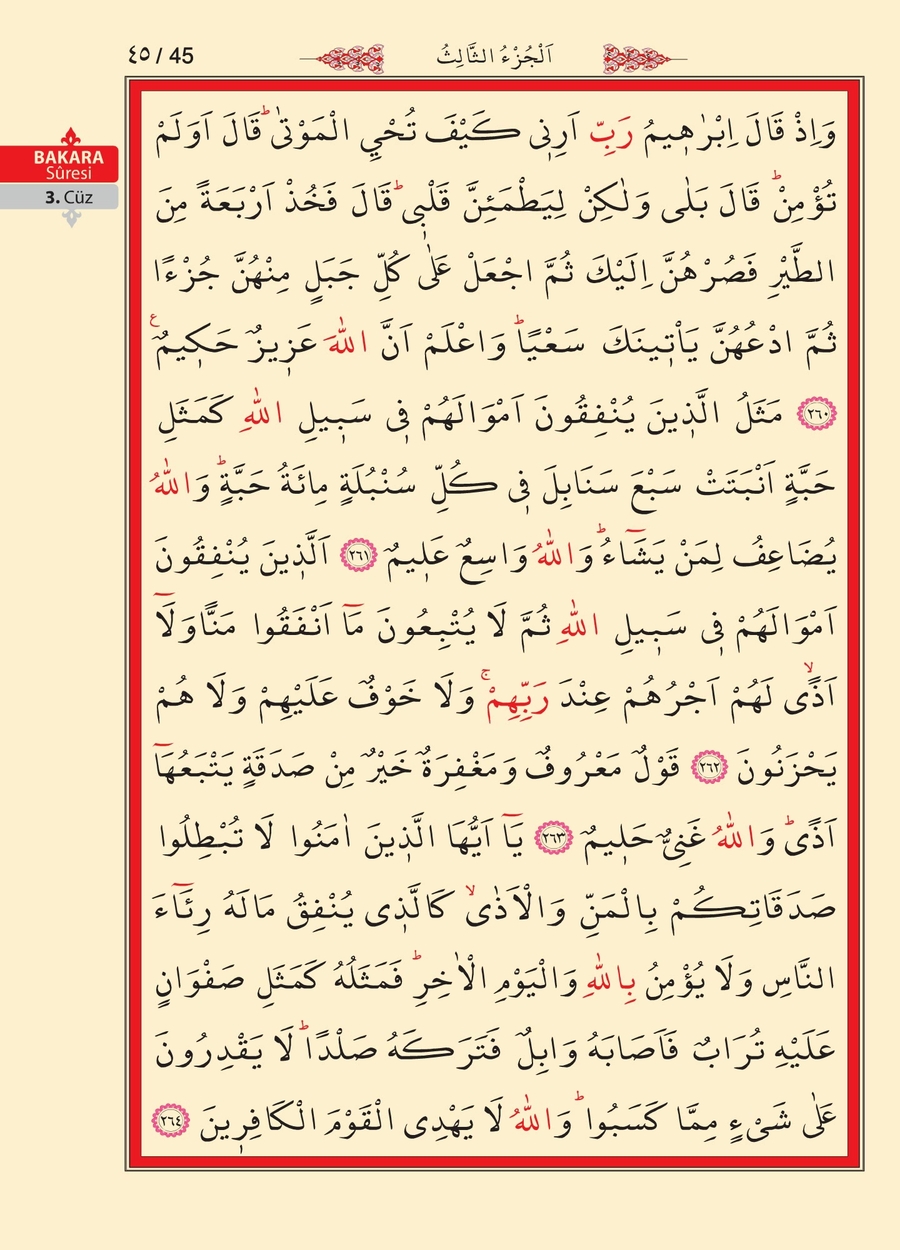 ٤٥ / 45
اَلْجُزْءُ الثَّالِثُ
BAKARA
Sûresi
3. Cüz
وَاِذْ قَالَ اِبْرٰه۪يمُ رَبِّ اَرِن۪ى كَيْفَ تُحْيِ الْمَوْتٰىۜ قَالَ اَوَلَمْ
تُؤْمِنْۜ قَالَ بَلٰى وَلٰكِنْ لِيَطْمَئِنَّ قَلْب۪ىۜ قَالَ فَخُذْ اَرْبَعَةً مِنَ
الطَّيْرِ فَصُرْهُنَّ اِلَيْكَ ثُمَّ اجْعَلْ عَلٰى كُلِّ جَبَلٍ مِنْهُنَّ جُزْءًا
ثُمَّ ادْعُهُنَّ يَأْت۪ينَكَ سَعْيًاۜ وَاعْلَمْ اَنَّ اللّٰهَ عَز۪يزٌ حَك۪يمٌ۟
﴿٢٦٠﴾ مَثَلُ الَّذ۪ينَ يُنْفِقُونَ اَمْوَالَهُمْ ف۪ى سَب۪يلِ اللّٰهِ كَمَثَلِ
حَبَّةٍ اَنْبَتَتْ سَبْعَ سَنَابِلَ ف۪ى كُلِّ سُنْبُلَةٍ مِائَةُ حَبَّةٍۜ وَاللّٰهُ
يُضَاعِفُ لِمَنْ يَشَٓاءُۜ وَاللّٰهُ وَاسِعٌ عَل۪يمٌ ﴿٢٦١﴾ اَلَّذ۪ينَ يُنْفِقُونَ
اَمْوَالَهُمْ ف۪ى سَب۪يلِ اللّٰهِ ثُمَّ لَا يُتْبِعُونَ مَٓا اَنْفَقُوا مَنًّا وَلَٓا
اَذًىۙ لَهُمْ اَجْرُهُمْ عِنْدَ رَبِّهِمْۚ وَلَا خَوْفٌ عَلَيْهِمْ وَلَا هُمْ
يَحْزَنُونَ ﴿٢٦٢﴾ قَوْلٌ مَعْرُوفٌ وَمَغْفِرَةٌ خَيْرٌ مِنْ صَدَقَةٍ يَتْبَعُهَٓا
اَذًىۜ وَاللّٰهُ غَنِىٌّ حَل۪يمٌ ﴿٢٦٣﴾ يَٓا اَيُّهَا الَّذ۪ينَ اٰمَنُوا لَا تُبْطِلُوا
صَدَقَاتِكُمْ بِالْمَنِّ وَالْاَذٰىۙ كَالَّذ۪ى يُنْفِقُ مَالَهُ رِئَٓاءَ
النَّاسِ وَلَا يُؤْمِنُ بِاللّٰهِ وَالْيَوْمِ الْاٰخِرِۜ فَمَثَلُهُ كَمَثَلِ صَفْوَانٍ
عَلَيْهِ تُرَابٌ فَاَصَابَهُ وَابِلٌ فَتَرَكَهُ صَلْدًاۜ لَا يَقْدِرُونَ
عَلٰى شَىْءٍ مِمَّا كَسَبُواۜ وَاللّٰهُ لَا يَهْدِى الْقَوْمَ الْكَافِر۪ينَ ﴿٢٦٤﴾